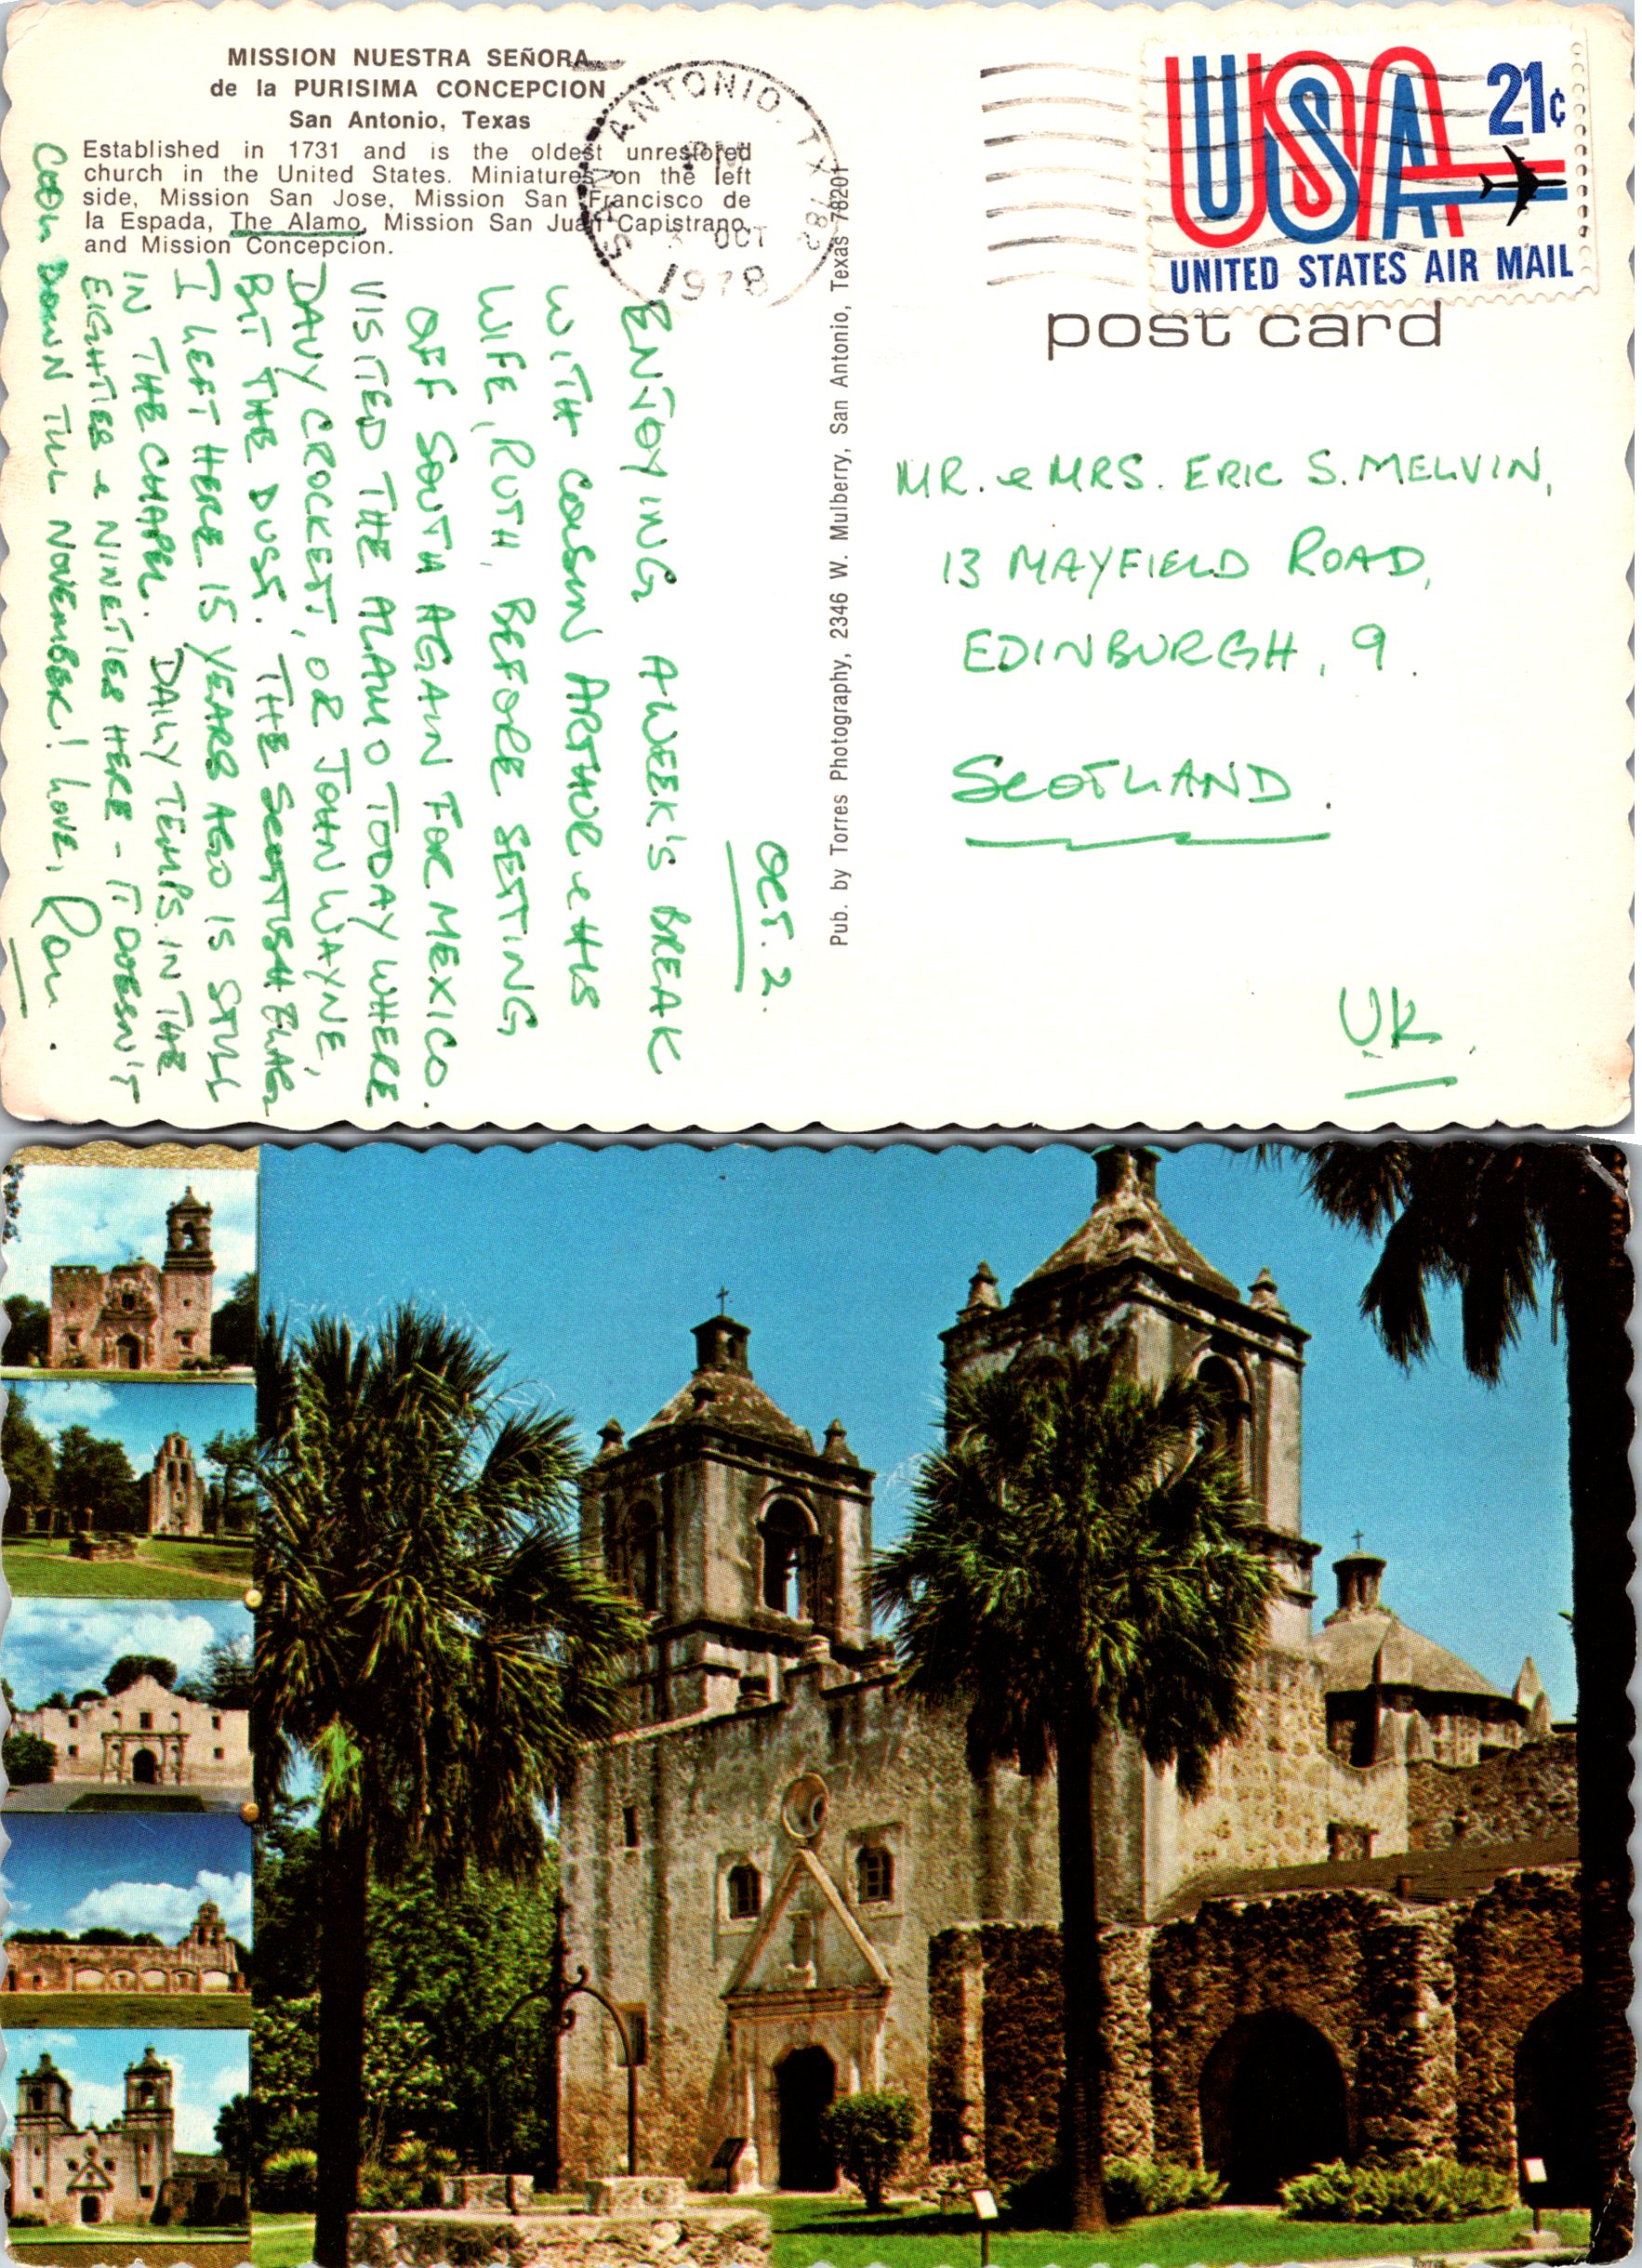 MISSION NUESTRA SEÑORA
de la PURISIMA CONCEPCION
San Antonio, Texas
Established in 1731 and is the oldest unrestored
church in the United States. Miniatures on the left
side, Mission San Jose, Mission San Francisco de
la Espada, The Alamo, Mission San Juan Capistrano,
and Mission Concepcion.
SAN ANTONIO, TX 782
PM
OCT
1978
USA 21¢
UNITED STATES AIR MAIL
post card
Pub. by Torres Photography, 2346 W. Mulberry, San Antonio, Texas 78201
OCT. 2.
ENJOYING A WEEK'S BREAK
WITH COUSIN ARTHUR & HIS
WIFE, RUTH, BEFORE SETTING
OFF SOUTH AGAIN FOR MEXICO.
VISITED THE ALAMO TODAY WHERE
DAVY CROCKETT, OR JOHN WAYNE,
BIT THE DUST. THE SCOTTISH FLAG
I LEFT HERE 15 YEARS AGO IS STILL
IN THE CHAPEL. DAILY TEMPS. IN THE
EIGHTIES & NINETIES HERE - IT DOESN'T
COOL DOWN TILL NOVEMBER! LOVE, Ron.
MR. & MRS. ERIC S. MELVIN,
13 MAYFIELD ROAD,
EDINBURGH, 9.
SCOTLAND.
U.K.